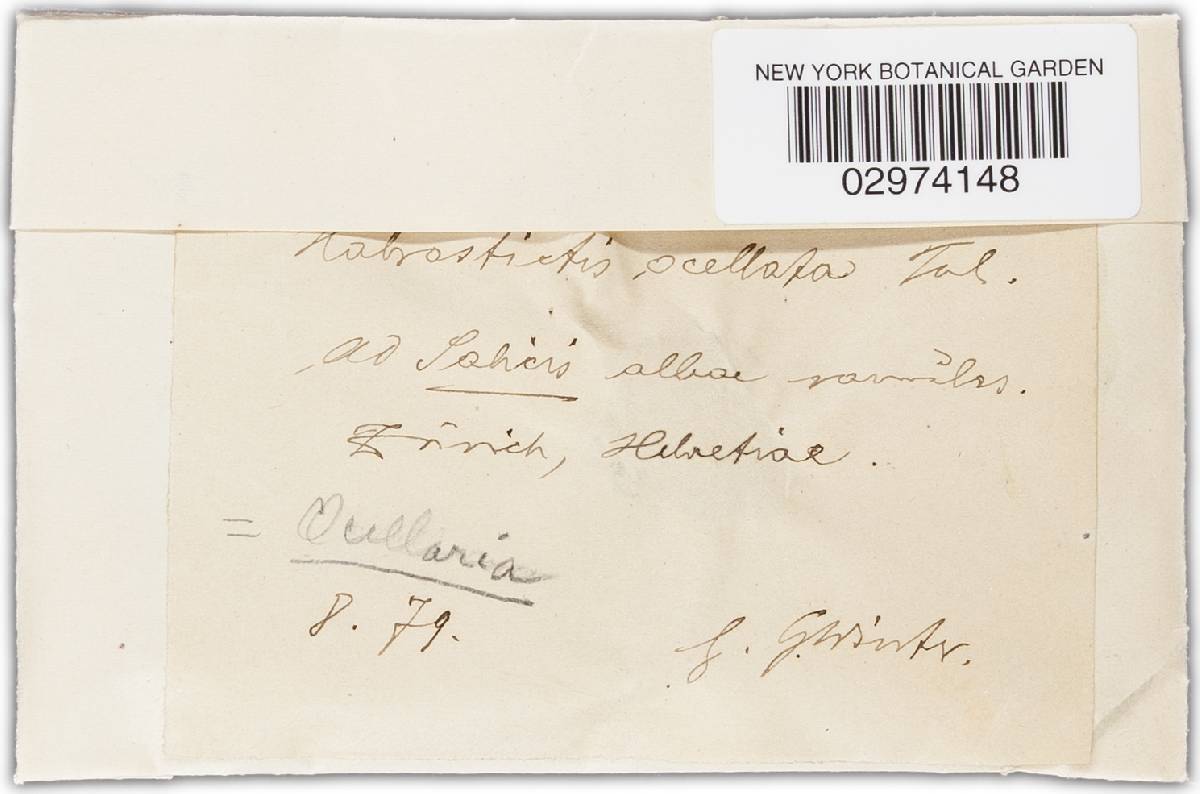 NEW YORK BOTANICAL GARDEN
02974148
Habrostictis ocellata Tul.
Ad Salicis albae ramulos.
Zürich, Helvetiae.
= Ocellaria
8. 79. G. Winter.